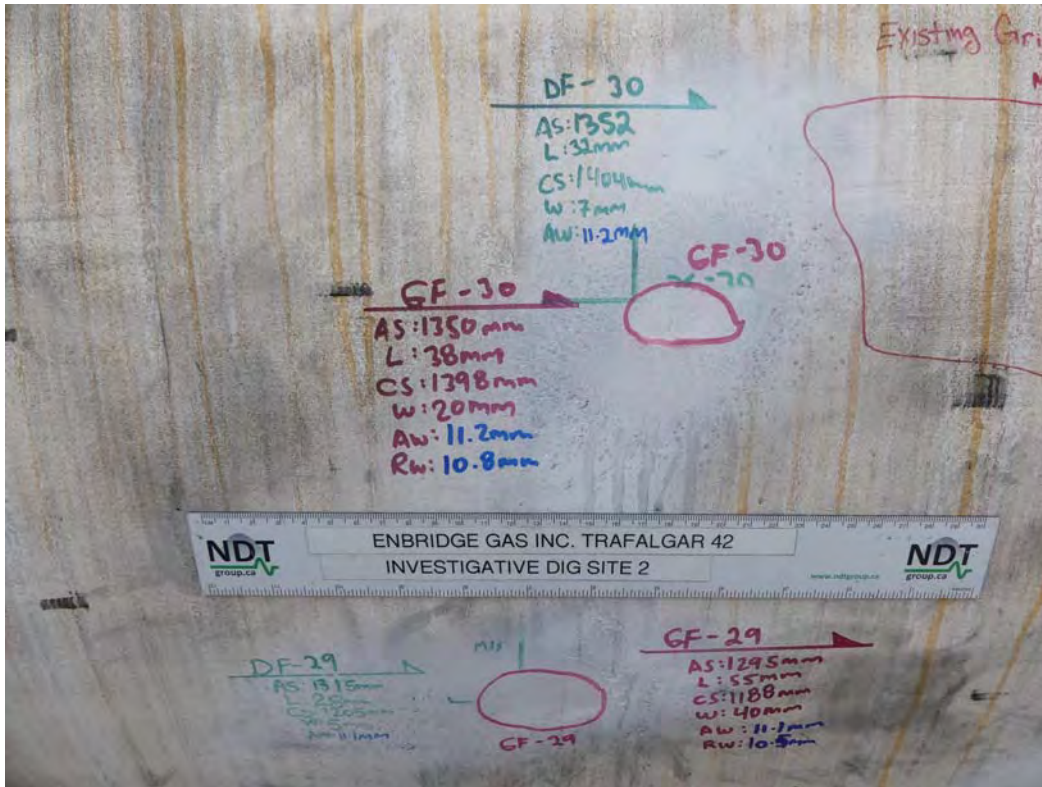 Existing Gri
DF-30
AS:1352
L:32mm
CS:1404mm
W:7mm
AW:11.2mm
GF-30
GF-30
AS:1350mm
L:38mm
CS:1398mm
W:20mm
AW:11.2mm
RW:10.8mm
NDT
group.ca
ENBRIDGE GAS INC. TRAFALGAR 42
INVESTIGATIVE DIG SITE 2
www.ndtgroup.ca
NDT
group.ca
DF-29
AS:1315mm
GF-29
GF-29
AS:1295mm
L:55mm
CS:1188mm
W:40mm
AW:11.1mm
RW:10.5mm